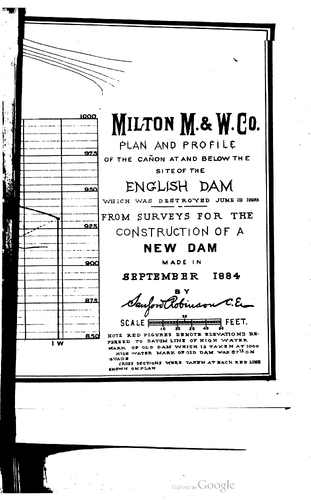 1000
975
950
925
900
875
850
1 W
MILTON M. & W. CO.
PLAN AND PROFILE
OF THE CAÑON AT AND BELOW THE
SITE OF THE
ENGLISH DAM
WHICH WAS DESTROYED JUNE 18 1883
FROM SURVEYS FOR THE
CONSTRUCTION OF A
NEW DAM
MADE IN
SEPTEMBER 1884
BY
Sanford Robinson C.E.
SCALE FEET.
10 20 30 40 50
NOTE RED FIGURES DENOTE ELEVATIONS RE-
FERED TO DATUM LINE OF HIGH WATER
MARK OF OLD DAM WHICH IS TAKEN AT 1000
HIGH WATER MARK OF OLD DAM WAS ON
GUAGE
CROSS SECTIONS WERE TAKEN AT EACH RED LINE
SHOWN ON PLAN
Digitized by Google